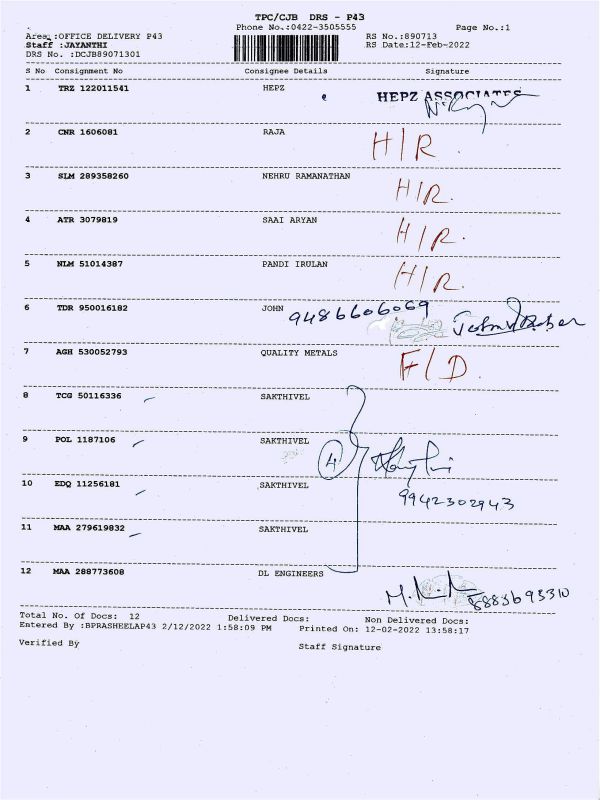 TPC/CJB DRS - P43
Phone No.:0422-3505555
Page No.:1
Area :OFFICE DELIVERY P43
RS No.:890713
Staff :JAYANTHI
RS Date:12-Feb-2022
DRS No. :DCJB89071301
S No Consignment No Consignee Details Signature
1 TRZ 122011541 HEPZ HEPZ ASSOCIATES
2 CNR 1606081 RAJA H/R.
3 SLM 289358260 NEHRU RAMANATHAN H/R.
4 ATR 3079819 SAAI ARYAN H/R.
5 NLM 51014387 PANDI IRULAN H/R.
6 TDR 950016182 JOHN 9486606069
7 AGH 530052793 QUALITY METALS F/D.
8 TCG 50116336 SAKTHIVEL
9 POL 1187106 SAKTHIVEL 4
10 EDQ 11256181 SAKTHIVEL 9942302943
11 MAA 279619832 SAKTHIVEL
12 MAA 288773608 DL ENGINEERS
Total No. Of Docs: 12 Delivered Docs: Non Delivered Docs:
Entered By :BPRASHEELAP43 2/12/2022 1:58:09 PM Printed On: 12-02-2022 13:58:17
Verified By Staff Signature